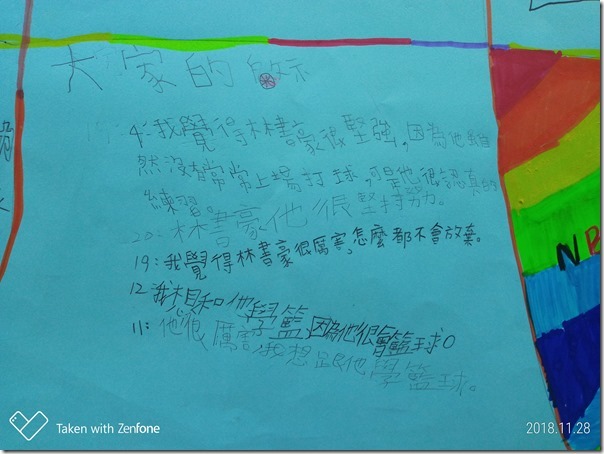 大家的啟示
4:我覺得林書豪很堅強,因為他雖
然沒有常常上場打球,可是他很認真的
練習。
20:林書豪他很堅持努力。
19:我覺得林書豪很厲害,怎麼都不會放棄。
12 我想和他學籃,因為他很會籃球。
11:他很厲害,我想跟他學籃球。
NB
Taken with Zenfone
2018.11.28